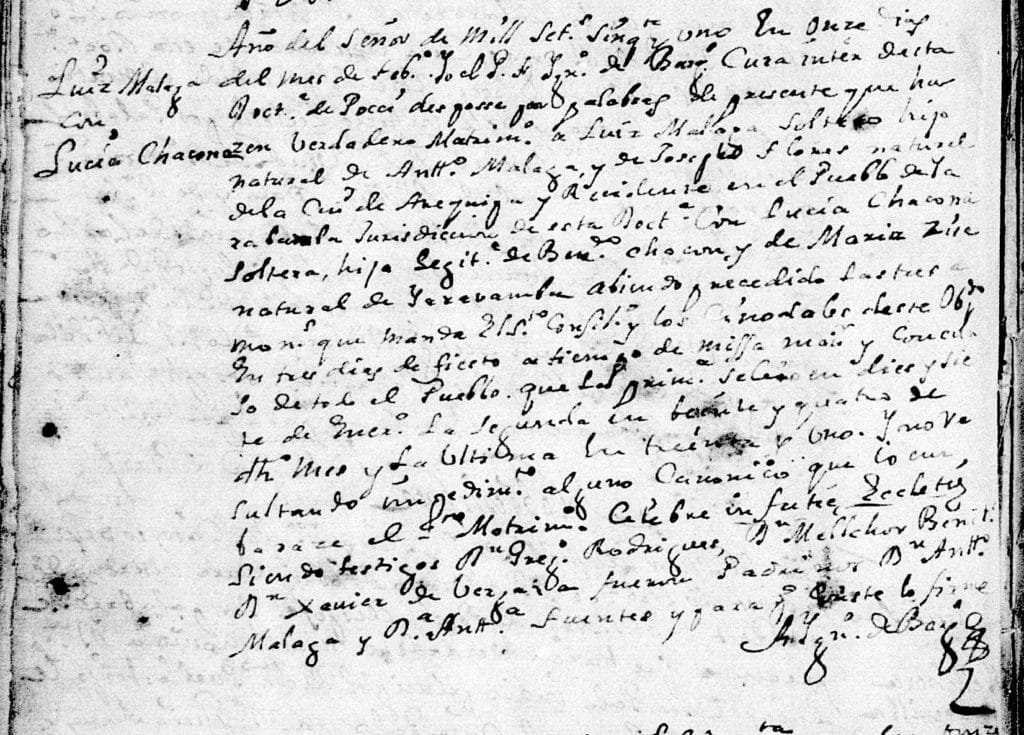 Año del Señor de Mill Set.s Sinq.ta y uno En Onze dias
Luiz Malaga
con
Lucia Chacona
del mes de Feb.o Yo el P. F. Ygn.o de Cura inter desta
Doct.a de Pocci despose por palabras de presente que has
zen verdadero Matrim.o a Luiz Malaga Soltero hijo
natural de Antt.o Malaga, y de Josepha Flores natural
dela Ciu.d de Arequipa y Recidente en el Pueblo de Ya
rabamba Jurisdicion de esta Doct.a Con Lucia Chacona
Soltera, hija Legit.a de Ben.to chacon, y de Maria
natural de Yaravamba abiendo precedido las tres a
mon.s que manda El S.to Consil.o y los Cinodales deste Obp.do
En tres dias de fiesto a tiempo de missa maior y Concur
so de todo el Pueblo. que la prim.a en dies y sie
te de Ener.o La Segunda en beinte y quatro de
dh.o Mes y la Ultima En treinta y uno. Y no re
sultando impedim.to alguno Canonico que lo em
barase el Matrim.o Celebre in facie Ecclecie
Siendo testigos D.n Greg.o Rodrigues, D.n Mellchor Benit.
D.n Xavier de Vergara fueron Padrinos D.n Antt.o
Malaga y D.a Antt.a Fuentes y para q.e Coste lo firme
Ygn.o de